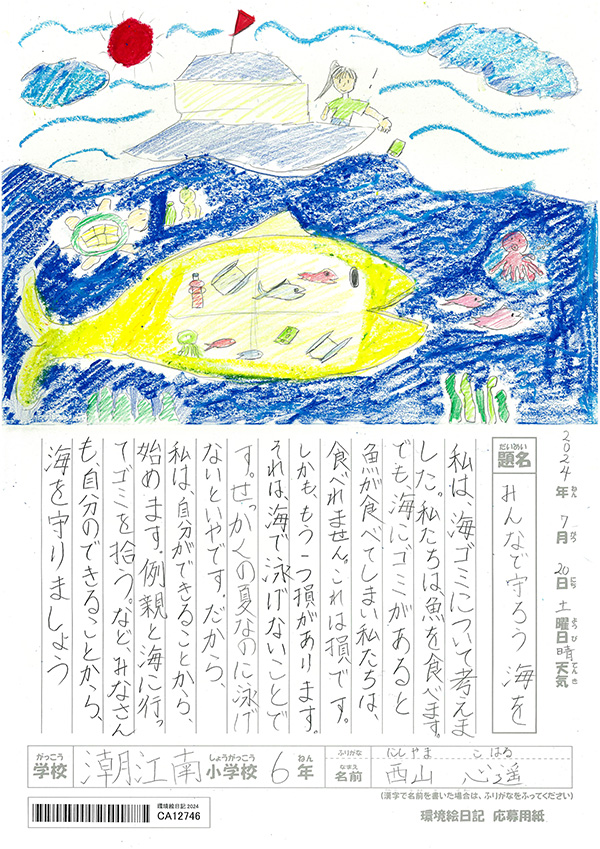 2024年7月20日土曜日晴天気
ねん がつ にち ようび てんき
だいめい
題名
みんなで守ろう 海を
私は、海ゴミについて考えま
した。私たちは魚を食べます。
でも、海にゴミがあると
魚が食べてしまい私たちは、
食べれません。これは損です。
しかも、もう一つ損があります。
それは、海で泳げないことで
す。せっかくの夏なのに泳げ
ないといやです。だから、
私は、自分ができることから、
始めます。例親と海に行っ
てゴミを拾う。など、みなさん
も、自分のできることから、
海を守りましょう
がっこう
学校
潮江南
しょうがっこう
小学校
6
ねん
年
ふりがな
にしやま こはる
なまえ
名前
西山 心遥
(漢字で名前を書いた場合は、ふりがなをふってください)
環境絵日記 2024
CA12746
環境絵日記 応募用紙